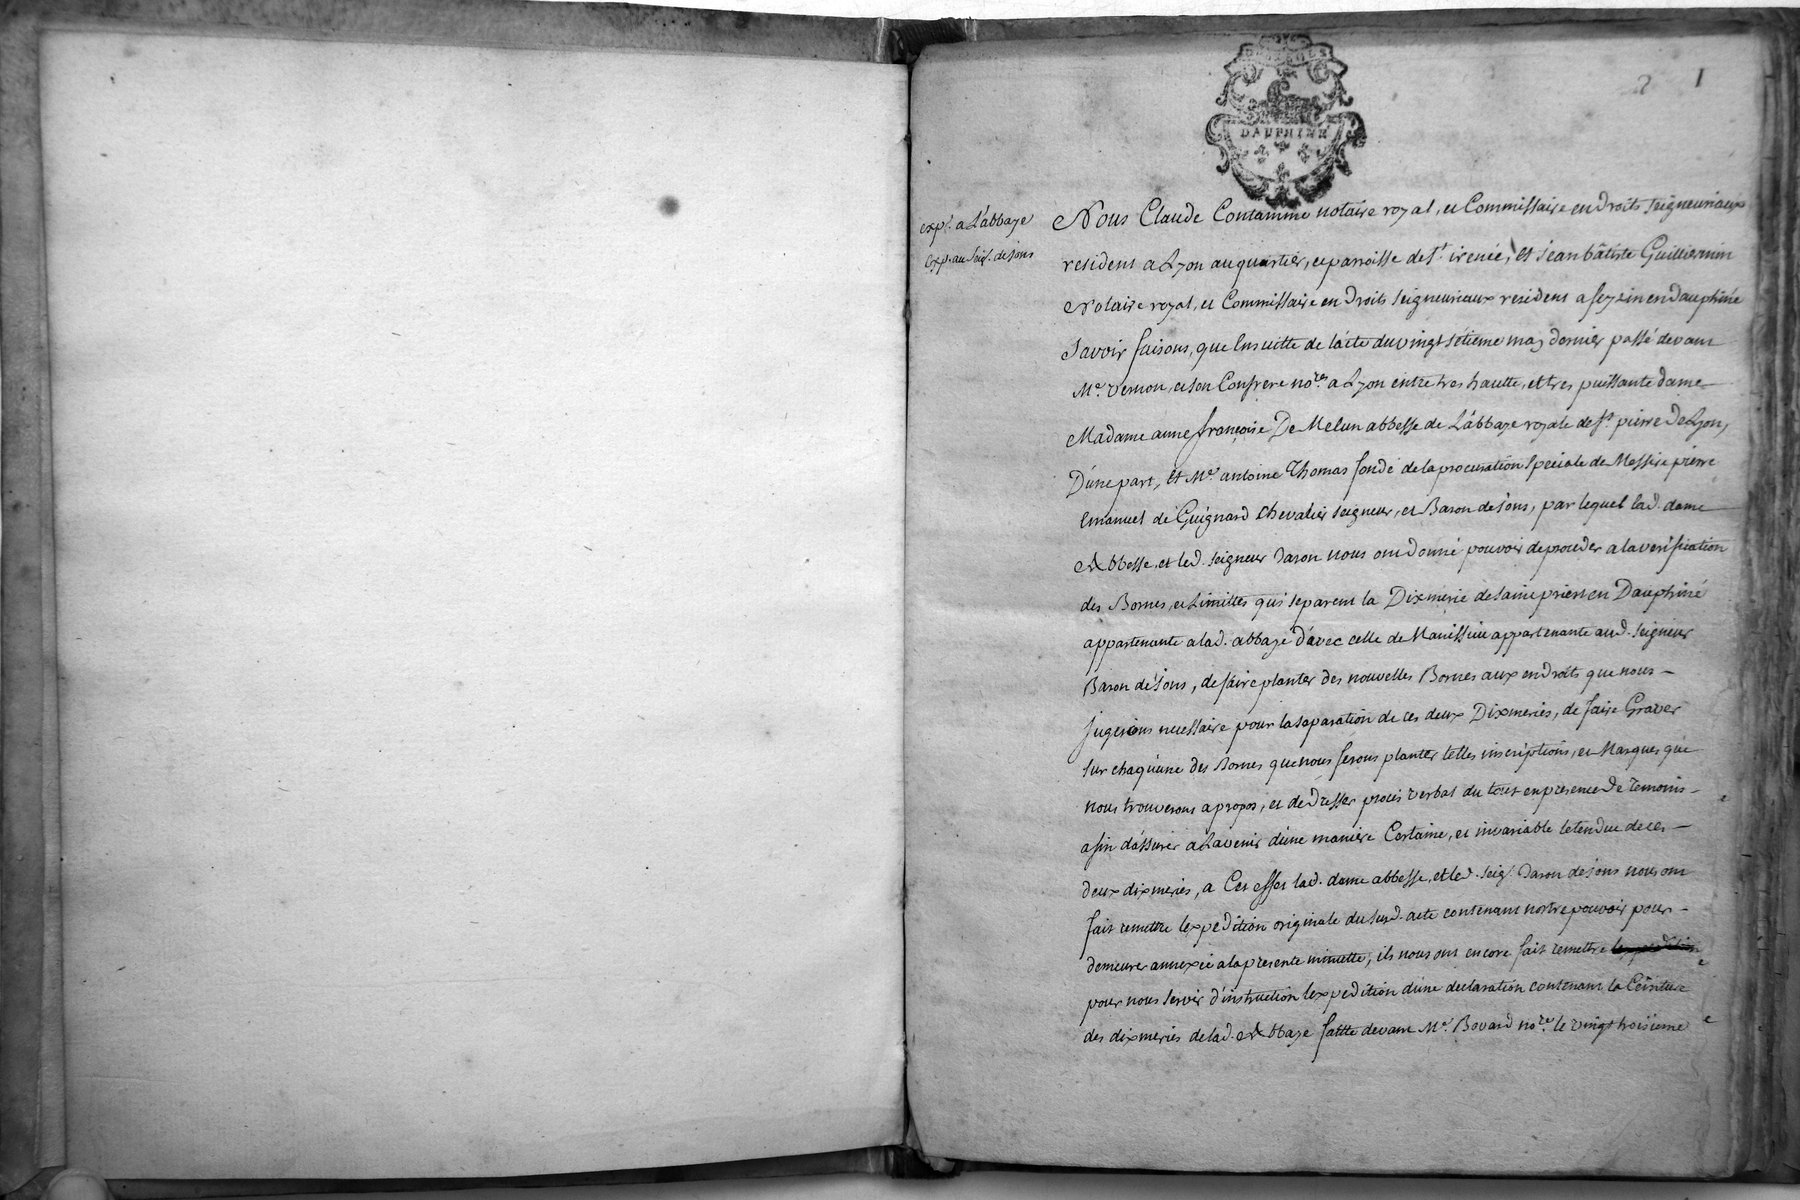 DEUX SOLS
DAUPHINE
1
exp. a L'abbaye
exp. au seig. de Jons
Nous Claude Contamine notaire royal, et Commissaire en droits seigneuriaux
resident a Lyon au quartier, et parroisse de St. irenée, et Jean bâtiste Guillermin
Notaire royal, et Commissaire en droits seigneuriaux resident a feyzin en dauphiné
Savoir faisons, que Ensuitte de l'acte du vingt sétieme may dernier passé devant
Me. vernon, et son Confrere nores. a Lyon entre tres hautte, et tres puissante dame
Madame anne françoise De Melun abbesse de L'abbaye royale de St. pierre de Lyon,
D'une part, et Me. antoine Thomas fondé de la procuration speciale de Messire pierre
Emanuel de Guignard Chevalier seigneur, et Baron de Jons, par lequel lad. dame
Abbesse, et led. seigneur Baron nous ont donné pouvoir de proceder a la verification
des Bornes, et Limittes qui separent la Dixmerie de saint priest en Dauphiné
appartenante a lad. abbaye d'avec celle de Manissieu appartenante aud. seigneur
Baron de Jons, de faire planter des nouvelles Bornes aux endroits que nous
jugerions necessaire pour la separation de ces deux Dixmeries, de faire Graver
sur chaqu'une des Bornes que nous ferons planter telles inscriptions, et Marques que
nous trouverons a propos, et de dresser procés verbal du tout en presence de temoins
afin d'assurer a L'avenir d'une maniere Certaine, et invariable letendue de ces
deux dixmeries, a Cet effet lad. dame abbesse, et led. seigr. Baron de Jons nous ont
fait remettre lexpedition originale du susd. acte contenant nostre pouvoir pour
demeurer annexée a la presente minutte, ils nous ont encore fait remettre lexpedition
pour nous servir d'instruction lexpedition d'une declaration contenant la Ceinture
des dixmeries de lad. Abbaye faitte devant Me. Bovard nore. le vingt troisieme